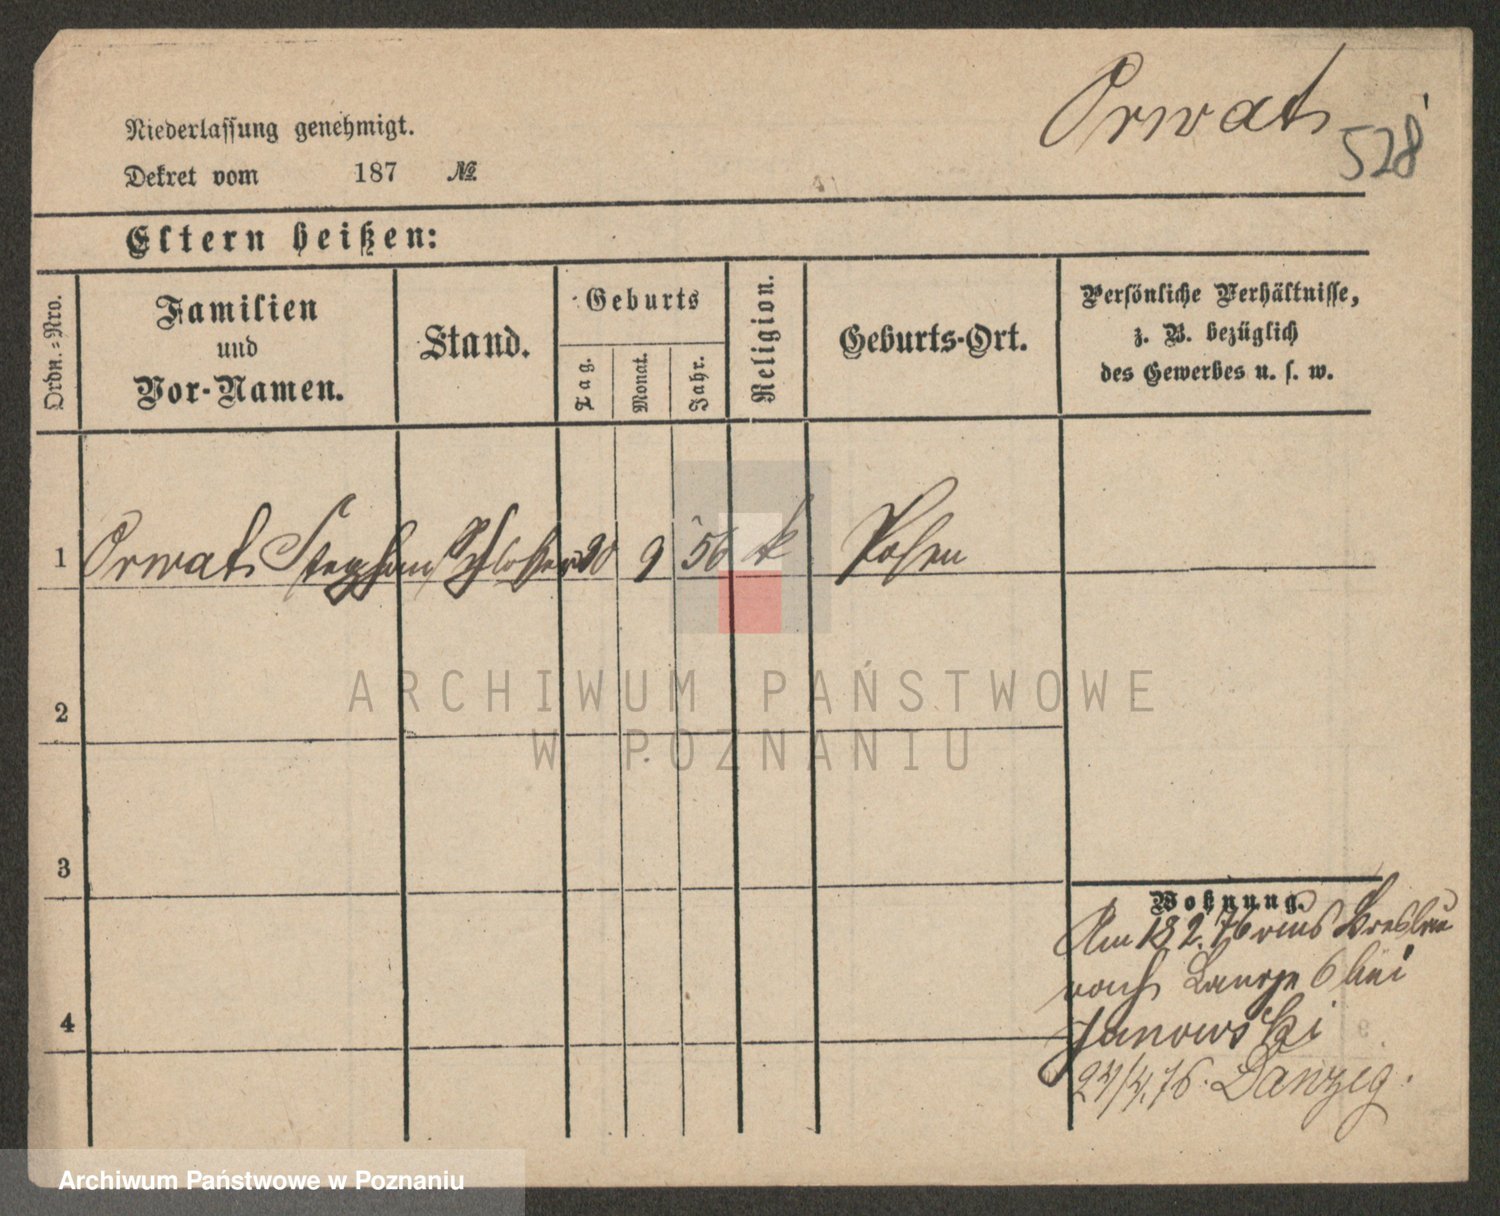 Orwat
528
Niederlassung genehmigt.
Dekret vom 187 №
Eltern heißen:
Ordn.-Nro.
Familien
und
Vor-Namen.
Stand.
Geburts
Tag.
Monat.
Jahr.
Religion.
Geburts-Ort.
Persönliche Verhältnisse,
z. B. bezüglich
des Gewerbes u. s. w.
1 Orwat Stephan Schlosser 20 9 56 k Posen
2
3
4
Wohnung.
Am 18 2. 76 aus Breslau
nach Lange 6 bei
Janowski
24/4.76. Danzig.
ARCHIWUM PAŃSTWOWE
W POZNANIU
Archiwum Państwowe w Poznaniu